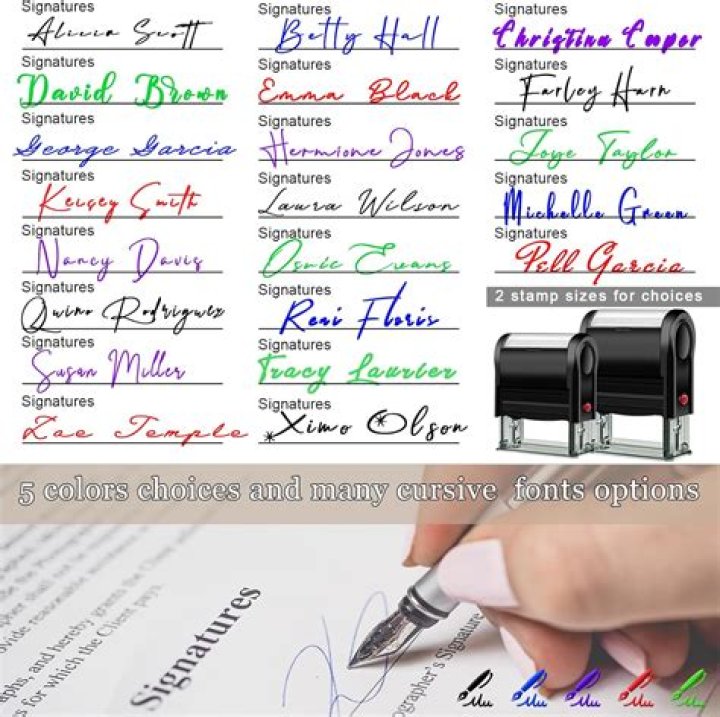 Signatures
Alicia Scott
Signatures
David Brown
Signatures
George Garcia
Signatures
Keisey Smith
Signatures
Nancy Davis
Signatures
Quino Rodriguez
Signatures
Susan Miller
Signatures
Zae Temple
Signatures
Betty Hall
Signatures
Emma Black
Signatures
Hermione Jones
Signatures
Laura Wilson
Signatures
Osnic Evans
Signatures
Reni Floris
Signatures
Tracy Laurier
Signatures
Ximo Olson
Signatures
Christina Cooper
Signatures
Farley Harn
Signatures
Joye Taylor
Signatures
Michelle Green
Signatures
Pell Garcia
2 stamp sizes for choices
5 colors choices and many cursive fonts options
the Client
and hereby grants
for which the Client pays.
Signatures
ographer's Signature